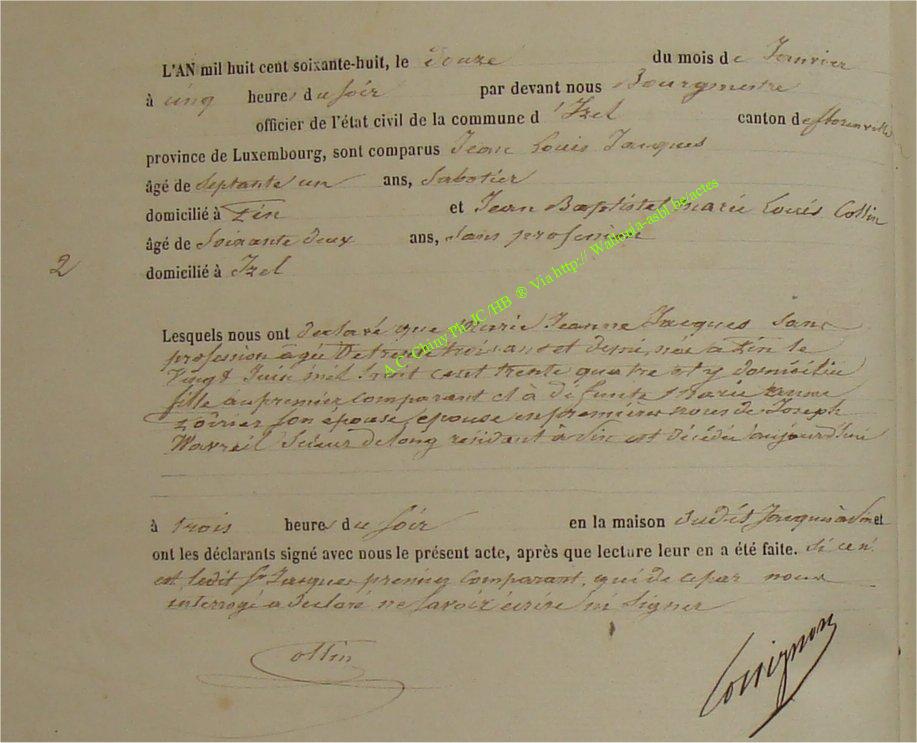 L'AN mil huit cent soixante-huit, le douze du mois de Janvier
à cinq heures du soir par devant nous Bourgmestre
officier de l'état civil de la commune d'Izel canton de florenville
province de Luxembourg, sont comparus Jean Louis Jacques
âgé de septante un ans, Sabotier
domicilié à Pin et Jean Baptiste marie Louis Collin
âgé de soixante deux ans, sans profession
2 domicilié à Izel
Lesquels nous ont declaré que Marie Jeanne Jacques sans
profession agée de trente trois ans et demi, née à Pin le
Vingt Juin mil huit cent trente quatre et y domiciliée
fille au premier comparant et à défunte Marie Jeanne
son épouse, épouse en premieres noces de Joseph
Scieur de long résidant à Pin est décédée aujourd'hui
à trois heures du soir en la maison dudit Jacques à Pin et
ont les déclarants signé avec nous le présent acte, après que lecture leur en a été faite. Si ce n'
est ledit Sr Jacques premier comparant, qui de ce par nous
interrogé a declaré ne savoir écrire ni signer
Collin
A.C. Chiny Ph. JC /HB ® Via http:// Wallonia-asbl be/actes